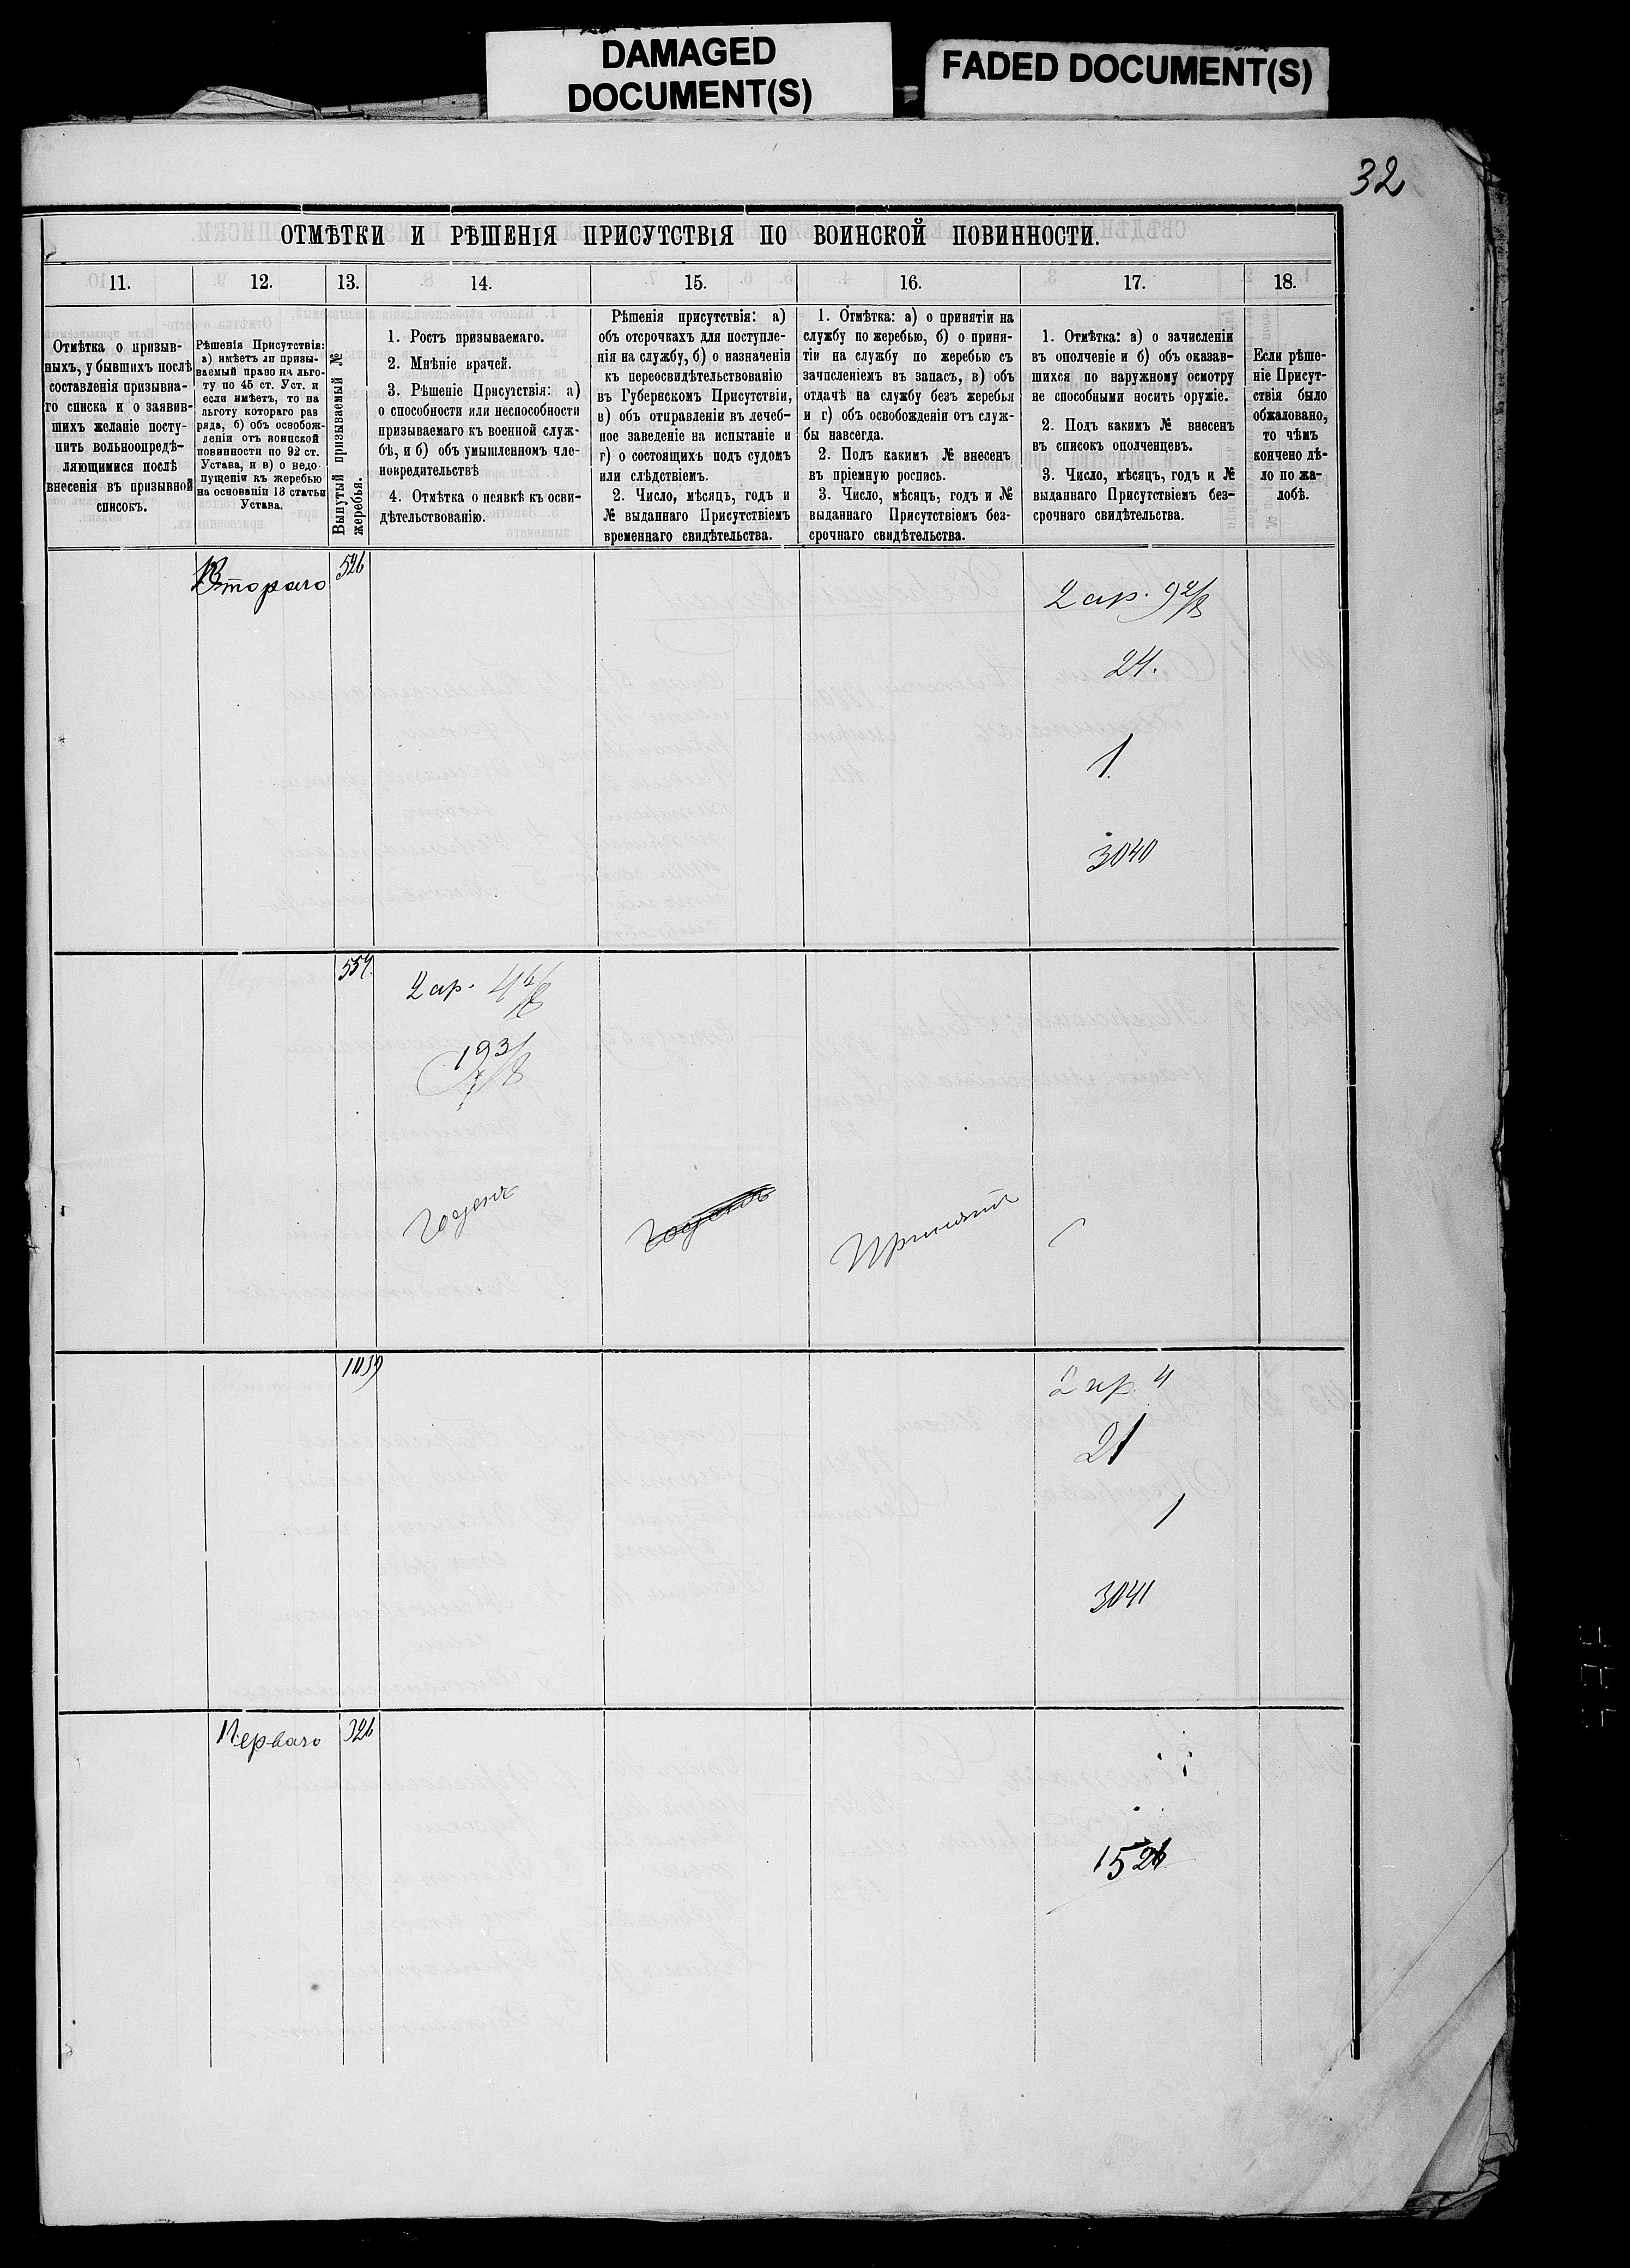 DAMAGED
DOCUMENT(S)
FADED DOCUMENT(S)
32
ОТМѢТКИ И РѢШЕНІЯ ПРИСУТСТВІЯ ПО ВОИНСКОЙ ПОВИННОСТИ.
11.
12.
13.
14.
15.
16.
17.
18.
Отмѣтка о призыв-
ныхъ, у бывшихъ послѣ
составленія призывна-
го списка и о заявив-
шихъ желаніе посту-
пить вольноопредѣ-
ляющимися послѣ
внесенія въ призывной
списокъ.
Рѣшенія Присутствія:
а) имѣетъ ли призы-
ваемый право на льго-
ту по 45 ст. Уст. и
если имѣетъ, то на
льготу котораго раз
ряда, б) объ освобож-
деніи отъ воинской
повинности по 92 ст.
Устава, и в) о недо-
пущеніи къ жеребью
на основаніи 13 статьи
Устава.
Вынутый призываемый №
жеребья.
1. Ростъ призываемаго.
2. Мнѣніе врачей.
3. Рѣшеніе Присутствія: а)
о способности или неспособности
призываемаго къ военной служ-
бѣ, и б) объ умышленномъ чле-
новредительствѣ
4. Отмѣтка о неявкѣ къ осви-
дѣтельствованію.
Рѣшенія присутствія: а)
объ отсрочкахъ для поступле-
нія на службу, б) о назначеніи
къ переосвидѣтельствованію
въ Губернскомъ Присутствіи,
в) объ отправленіи въ лечеб-
ное заведеніе на испытаніе и
г) о состоящихъ подъ судомъ
или слѣдствіемъ.
2. Число, мѣсяцъ, годъ и
№ выданнаго Присутствіемъ
временнаго свидѣтельства.
1. Отмѣтка: а) о принятіи на
службу по жеребью, б) о приня-
тіи на службу по жеребью съ
зачисленіемъ въ запасъ, в) объ
отдачѣ на службу безъ жеребья
и г) объ освобожденіи отъ служ-
бы навсегда.
2. Подъ какимъ № внесенъ
въ пріемную роспись.
3. Число, мѣсяцъ, годъ и №
выданнаго Присутствіемъ без-
срочнаго свидѣтельства.
1. Отмѣтка: а) о зачисленіи
въ ополченіе и б) объ оказав-
шихся по наружному осмотру
не способными носить оружіе.
2. Подъ какимъ № внесенъ
въ списокъ ополченцевъ.
3. Число, мѣсяцъ, годъ и №
выданнаго Присутствіемъ без-
срочнаго свидѣтельства.
Если рѣше-
ніе Присут-
ствія было
обжаловано,
то чѣмъ
кончено дѣ-
ло по жа-
лобѣ.
Втораго
526
2 ар.
24.
1
3040
557.
2 ар.
Годенъ
Годенъ
Принятъ
2 ар. 4
21
1
3041
Перваго
326
1526